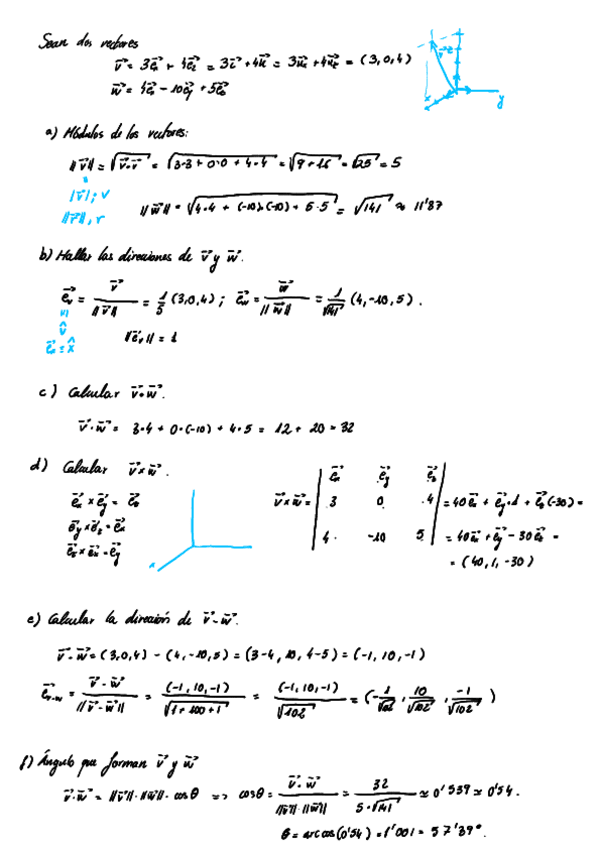 Sean dos vectores
v⃗ = 3e⃗ₓ + 4e⃗z = 3i⃗ + 4k⃗ = 3u⃗ₓ + 4u⃗z = (3, 0, 4)
w⃗ = 4e⃗ₓ - 10e⃗y + 5e⃗z
v⃗
x
y
z
a) Módulos de los vectores:
||v⃗|| = √(v⃗·v⃗) = √(3·3 + 0·0 + 4·4) = √(9 + 16) = √25 = 5
|v⃗|; v
||r⃗||, r
||w⃗|| = √(4·4 + (-10)·(-10) + 5·5) = √141 ≈ 11'87
b) Hallar las direcciones de v⃗ y w⃗.
e⃗v = v⃗/||v⃗|| = 1/5 (3, 0, 4) ; e⃗w = w⃗/||w⃗|| = 1/√141 (4, -10, 5).
≡
v̂
e⃗ₓ = x̂
||e⃗v|| = 1
c) Calcular v⃗·w⃗.
v⃗·w⃗ = 3·4 + 0·(-10) + 4·5 = 12 + 20 = 32
d) Calcular v⃗×w⃗.
e⃗ₓ × e⃗y = e⃗z
e⃗y × e⃗z = e⃗ₓ
e⃗z × e⃗ₓ = e⃗y
v⃗×w⃗ = | e⃗ₓ e⃗y e⃗z |
| 3 0 4 | = 40e⃗ₓ + e⃗y·1 + e⃗z(-30) =
| 4 -10 5 | = 40e⃗ₓ + e⃗y - 30e⃗z =
= (40, 1, -30)
e) Calcular la dirección de v⃗-w⃗.
v⃗-w⃗ = (3, 0, 4) - (4, -10, 5) = (3-4, 10, 4-5) = (-1, 10, -1)
e⃗v-w = (v⃗-w⃗)/||v⃗-w⃗|| = (-1, 10, -1)/√(1+100+1) = (-1, 10, -1)/√102 = (-1/√102, 10/√102, -1/√102)
f) Ángulo que forman v⃗ y w⃗
v⃗·w⃗ = ||v⃗||·||w⃗||·cosθ ⇒ cosθ = v⃗·w⃗/(||v⃗||·||w⃗||) = 32/(5·√141) ≃ 0'539 ≃ 0'54.
θ = arc cos(0'54) = 1'001 = 57'39°.